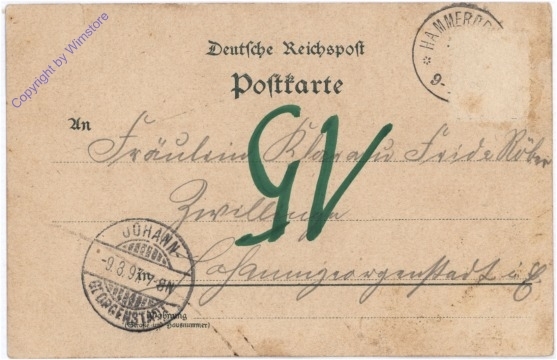 Copyright by Wimstore
Deutsche Reichspost
Postkarte
HAMMER
9-
An
Fräulein Klara u Frida
GV
Zwillinge
Johanngeorgenstadt i/S
JOHANN-
-9.3.9
-8N
GEORGENSTADT
Wohnung
(Straße und Hausnummer)